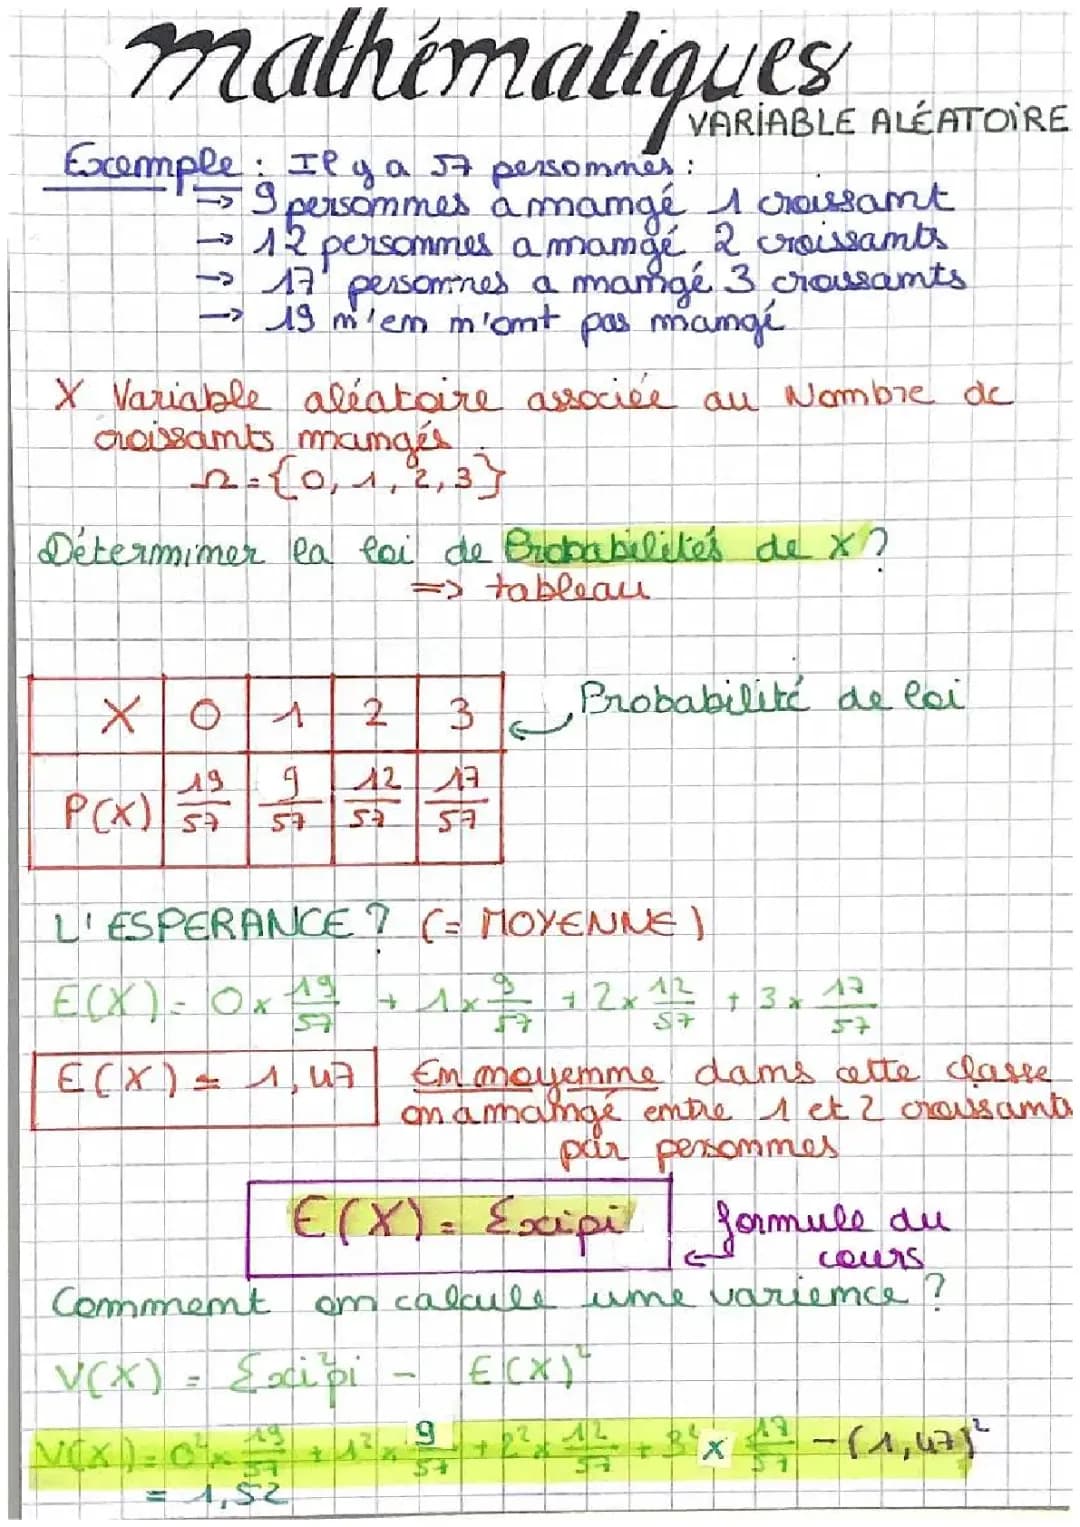 mathématiques
VARIABLE ALÉATOIRE
Exemple : Il y a 57 personnes :
→ 9 personnes a mangé 1 croissant
→ 12 personnes a mangé 2 croissants
→ 17 personnes a mangé 3 croissants
→ 19 n'en n'ont pas mangé
X Variable aléatoire associée au Nombre de
croissants mangés
Ω = {0, 1, 2, 3}
Déterminer la loi de Probabilités de X ?
=> tableau
X 0 1 2 3
Probabilité de loi
P(X) 19/57 9/57 12/57 17/57
L'ESPERANCE ? (= MOYENNE)
E(X) = 0 x 19/57 + 1 x 9/57 + 2 x 12/57 + 3 x 17/57
E(X) = 1,47
En moyenne dans cette classe
on a mangé entre 1 et 2 croissants
par personnes
E(X) = Σxipi
formule du
cours
Comment on calcule une varience ?
V(X) = Σxi²pi - E(X)²
V(X) = 0² x 19/57 + 1² x 9/57 + 2² x 12/57 + 3² x 17/57 - (1,47)²
= 1,52